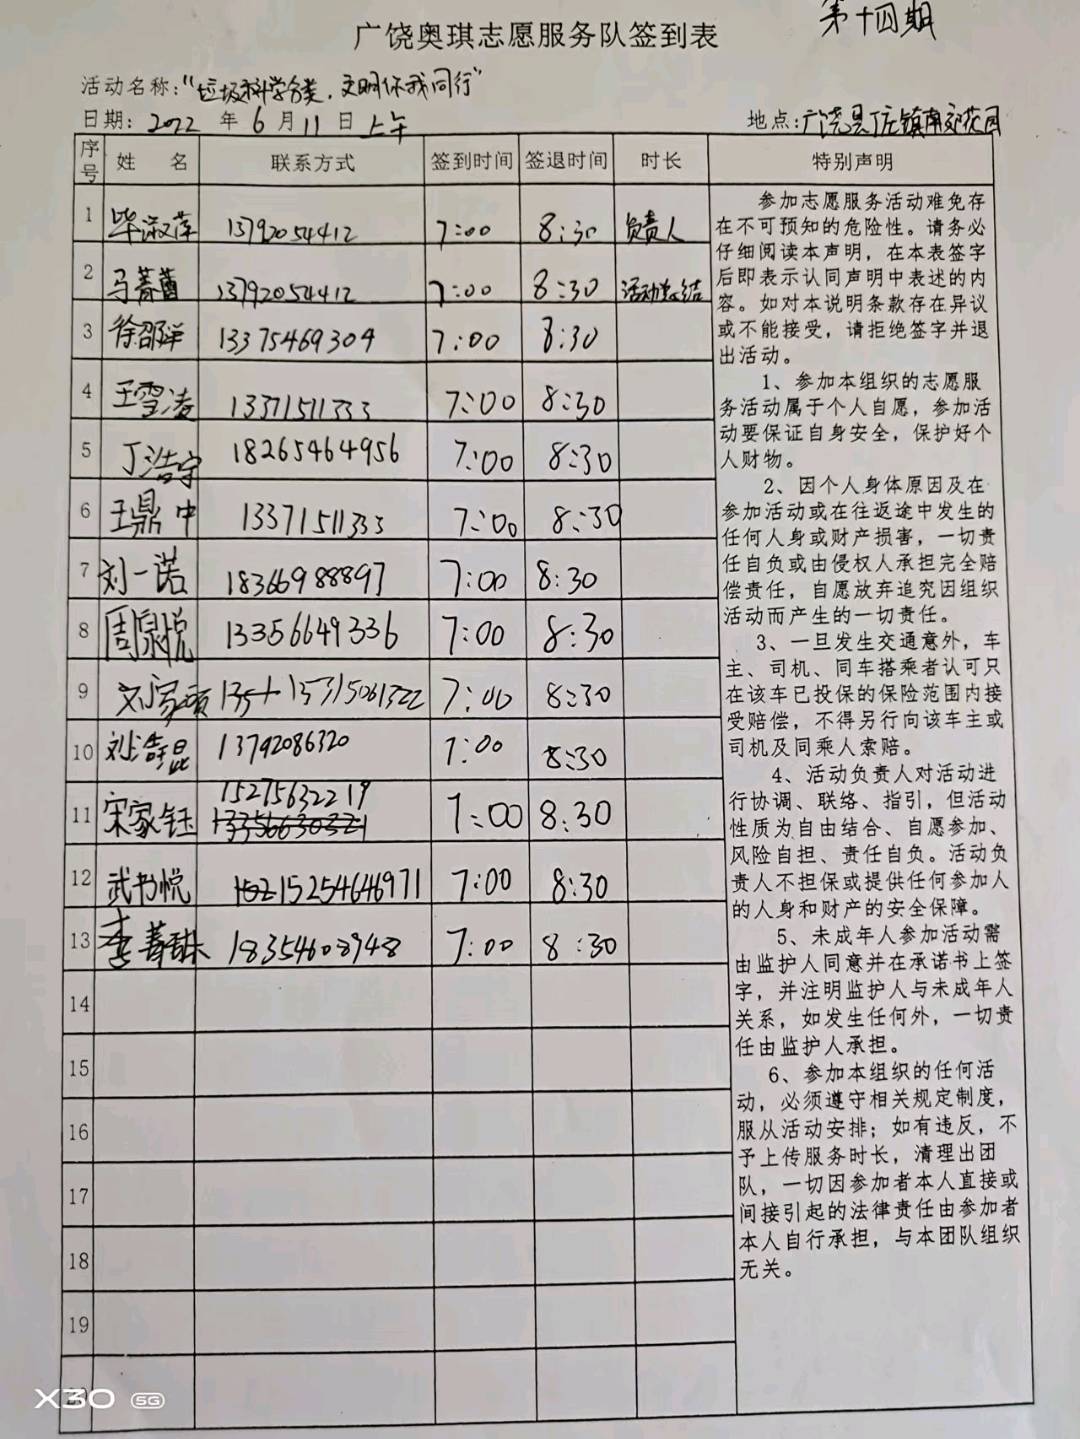 第十四期
广饶奥琪志愿服务队签到表
活动名称:“垃圾科学分类,文明你我同行”
日期: 2022 年 6 月 11 日 上午 地点:广饶县丁庄镇南郊花园
序号 姓 名 联系方式 签到时间 签退时间 时长 特别声明
1 毕淑萍 13792054412 7:00 8:30 负责人
2 马菁 13792054412 7:00 8:30 活动总结
3 徐邵洋 13375469304 7:00 8:30
4 王雪凌 13371511333 7:00 8:30
5 丁浩宇 18265464956 7:00 8:30
6 王鼎中 13371511333 7:00 8:30
7 刘一诺 18366988897 7:00 8:30
8 周泉悦 13356649336 7:00 8:30
9 刘家硕 15315061322 7:00 8:30
10 刘浩昆 13792086320 7:00 8:30
11 宋家钰 15275632219 7:00 8:30
13356630321
12 武书悦 152 15254646971 7:00 8:30
13 李菁琳 18354608948 7:00 8:30
14
15
16
17
18
19
参加志愿服务活动难免存
在不可预知的危险性。请务必
仔细阅读本声明,在本表签字
后即表示认同声明中表述的内
容。如对本说明条款存在异议
或不能接受,请拒绝签字并退
出活动。
1、参加本组织的志愿服
务活动属于个人自愿,参加活
动要保证自身安全,保护好个
人财物。
2、因个人身体原因及在
参加活动或在往返途中发生的
任何人身或财产损害,一切责
任自负或由侵权人承担完全赔
偿责任,自愿放弃追究因组织
活动而产生的一切责任。
3、一旦发生交通意外,车
主、司机、同车搭乘者认可只
在该车已投保的保险范围内接
受赔偿,不得另行向该车主或
司机及同乘人索赔。
4、活动负责人对活动进
行协调、联络、指引,但活动
性质为自由结合、自愿参加、
风险自担、责任自负。活动负
责人不担保或提供任何参加人
的人身和财产的安全保障。
5、未成年人参加活动需
由监护人同意并在承诺书上签
字,并注明监护人与未成年人
关系,如发生任何外,一切责
任由监护人承担。
6、参加本组织的任何活
动,必须遵守相关规定制度,
服从活动安排;如有违反,不
予上传服务时长,清理出团
队,一切因参加者本人直接或
间接引起的法律责任由参加者
本人自行承担,与本团队组织
无关。
X30 5G